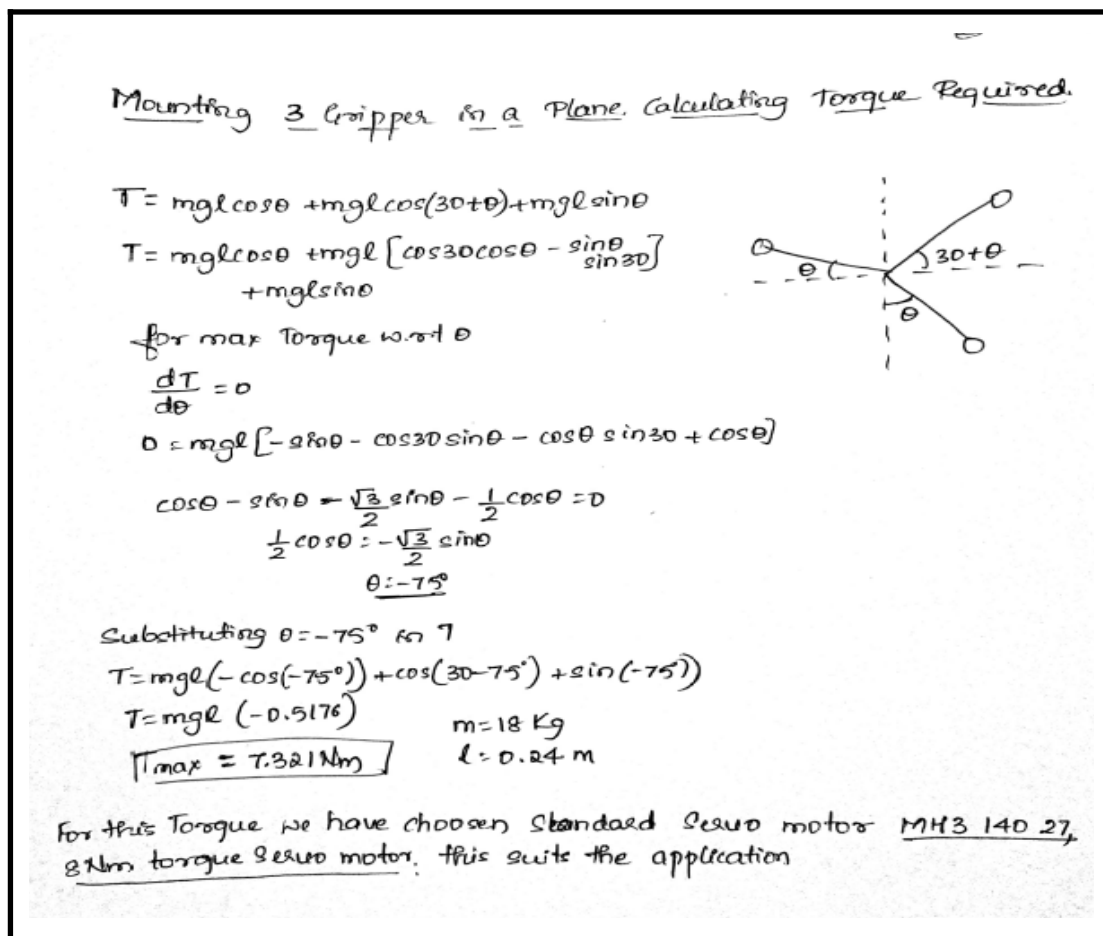 Mounting 3 Gripper in a Plane. Calculating Torque Required.
T = mglcosθ +mglcos(30+θ)+mglsinθ
T = mglcosθ +mgl[cos30cosθ - sinθ sin30]
+mglsinθ
θ
30+θ
θ
for max Torque w.r.t θ
dT/dθ = 0
0 = mgl[-sinθ - cos30sinθ - cosθ sin30 + cosθ]
cosθ - sinθ - √3/2 sinθ - 1/2 cosθ = 0
1/2 cosθ = -√3/2 sinθ
θ = -75°
Substituting θ = -75° in T
T = mgl(-cos(-75°)) + cos(30-75°) + sin(-75))
T = mgl (-0.5176)
m = 18 Kg
Tmax = 7.321Nm
l = 0.24 m
For this Torque we have choosen Standard Servo motor MH3 140 27,
8Nm torque servo motor. this suits the application